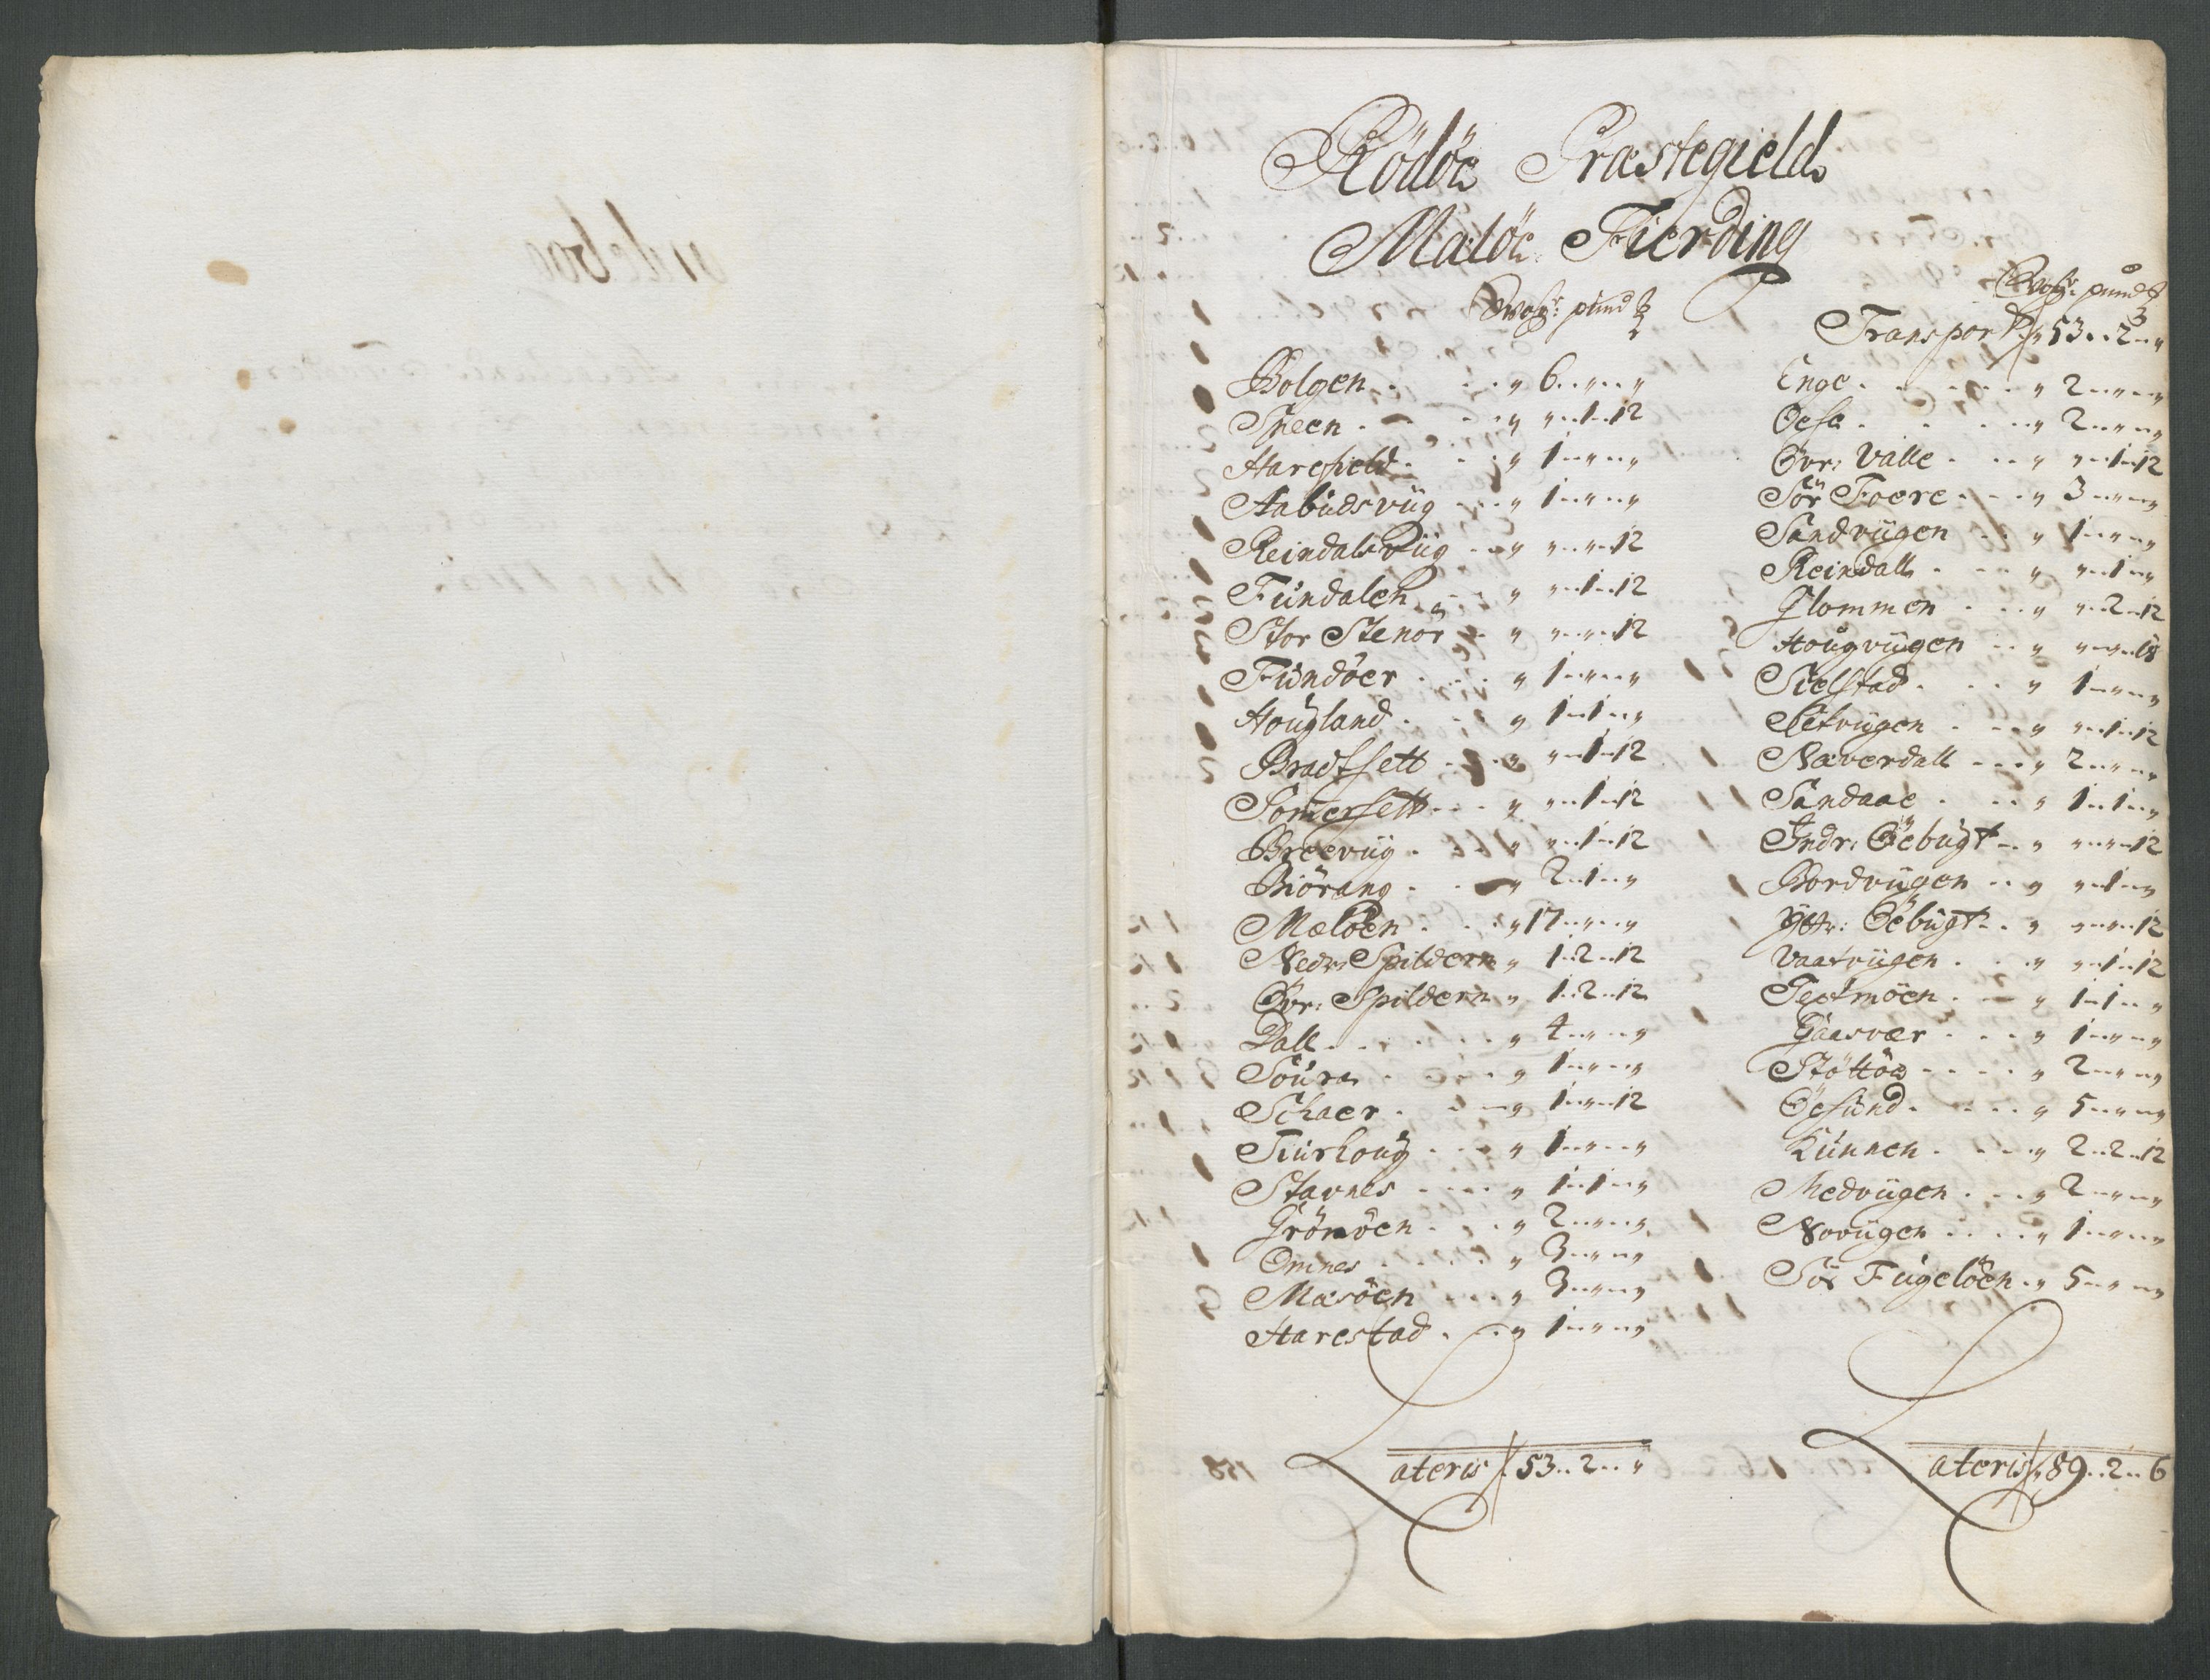 Rödöe Præstegield
Maløe Fierding
Woger: pund
Bolgen . . . „ 6 .. „ .. „
Teen . . . „ „ .. 1 .. 12
Harefield . . . „ 1 .. „ .. „
Aabudsvüg . . . „ 1 .. „ .. „
Reindalsvüg . . „ „ .. „ .. 12
Fundalen . . „ „ .. 1 .. 12
Stor Stenör . . „ „ .. „ .. 12
Fundöer . . . „ 1 .. „ .. „
Hougland . . . „ 1 .. 1 .. „
Bradtsett . . . „ „ .. 1 .. 12
Somersett . . . „ „ .. 1 .. 12
Breevüg . . . „ „ .. 1 .. 12
Biörang . . . „ 2 .. 1 .. „
Meløen . . . „ 17 .. „ .. „
Nedr: Spildern „ 1 .. 2 .. 12
Øvr: Spildern „ 1 .. 2 .. 12
Dall . . . . „ 4 .. „ .. „
Soura . . . . „ 1 .. „ .. „
Schaer . . . „ 1 .. „ .. 12
Tiurhoug . . . „ 1 .. „ .. „
Stavnes . . . „ 1 .. 1 .. „
Grönöen . . . „ 2 .. „ .. „
Omnes . . . . „ 3 .. „ .. „
Mesöen . . . „ 3 .. „ .. „
Harestad . . . „ 1 .. „ .. „
Lateris „ 53 .. 2 .. „
Woger: pund
Transport „ 53 .. 2 .. „
Enge . . . . „ 2 .. „ .. „
Oefse . . . . „ 2 .. „ .. „
Øvr: Valle . . . „ „ .. 1 .. 12
Sör Foere . . . „ 3 .. „ .. „
Sandvügen . . „ 1 .. „ .. „
Reindall . . . „ „ .. 1 .. „
Glommen . . . „ „ .. 2 .. 12
Hougvügen . . „ „ .. „ .. 18
Sielstad . . . „ 1 .. „ .. „
Setvügen . . . „ „ .. 1 .. 12
Næverdall . . . „ 2 .. „ .. „
Sandaae . . . „ 1 .. 1 .. „
Indr: Öebugt . . „ „ .. „ .. 12
Bordvügen . . „ „ .. 1 .. „
Yttr: Öebugt . . „ „ .. „ .. 12
Vaatvügen . . . „ „ .. 1 .. 12
Teetmöen . . . „ 1 .. 1 .. „
Gaasvær . . . „ 1 .. „ .. „
Støttöe . . . . „ 2 .. „ .. „
Öesund . . . . „ 5 .. „ .. „
Kunnen . . . . „ 2 .. 2 .. 12
Medvügen . . . „ 2 .. „ .. „
Novügen . . . . „ 1 .. „ .. „
Sör Fugelöen . . „ 5 .. „ .. „
Lateris „ 89 .. 2 .. 6